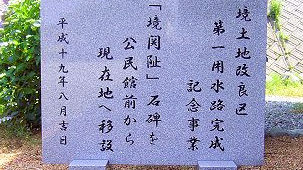 境土地改良区
第一用水路完成
記念事業
「境関趾」石碑を
公民館前から
現在地へ移設
平成十九年八月吉日